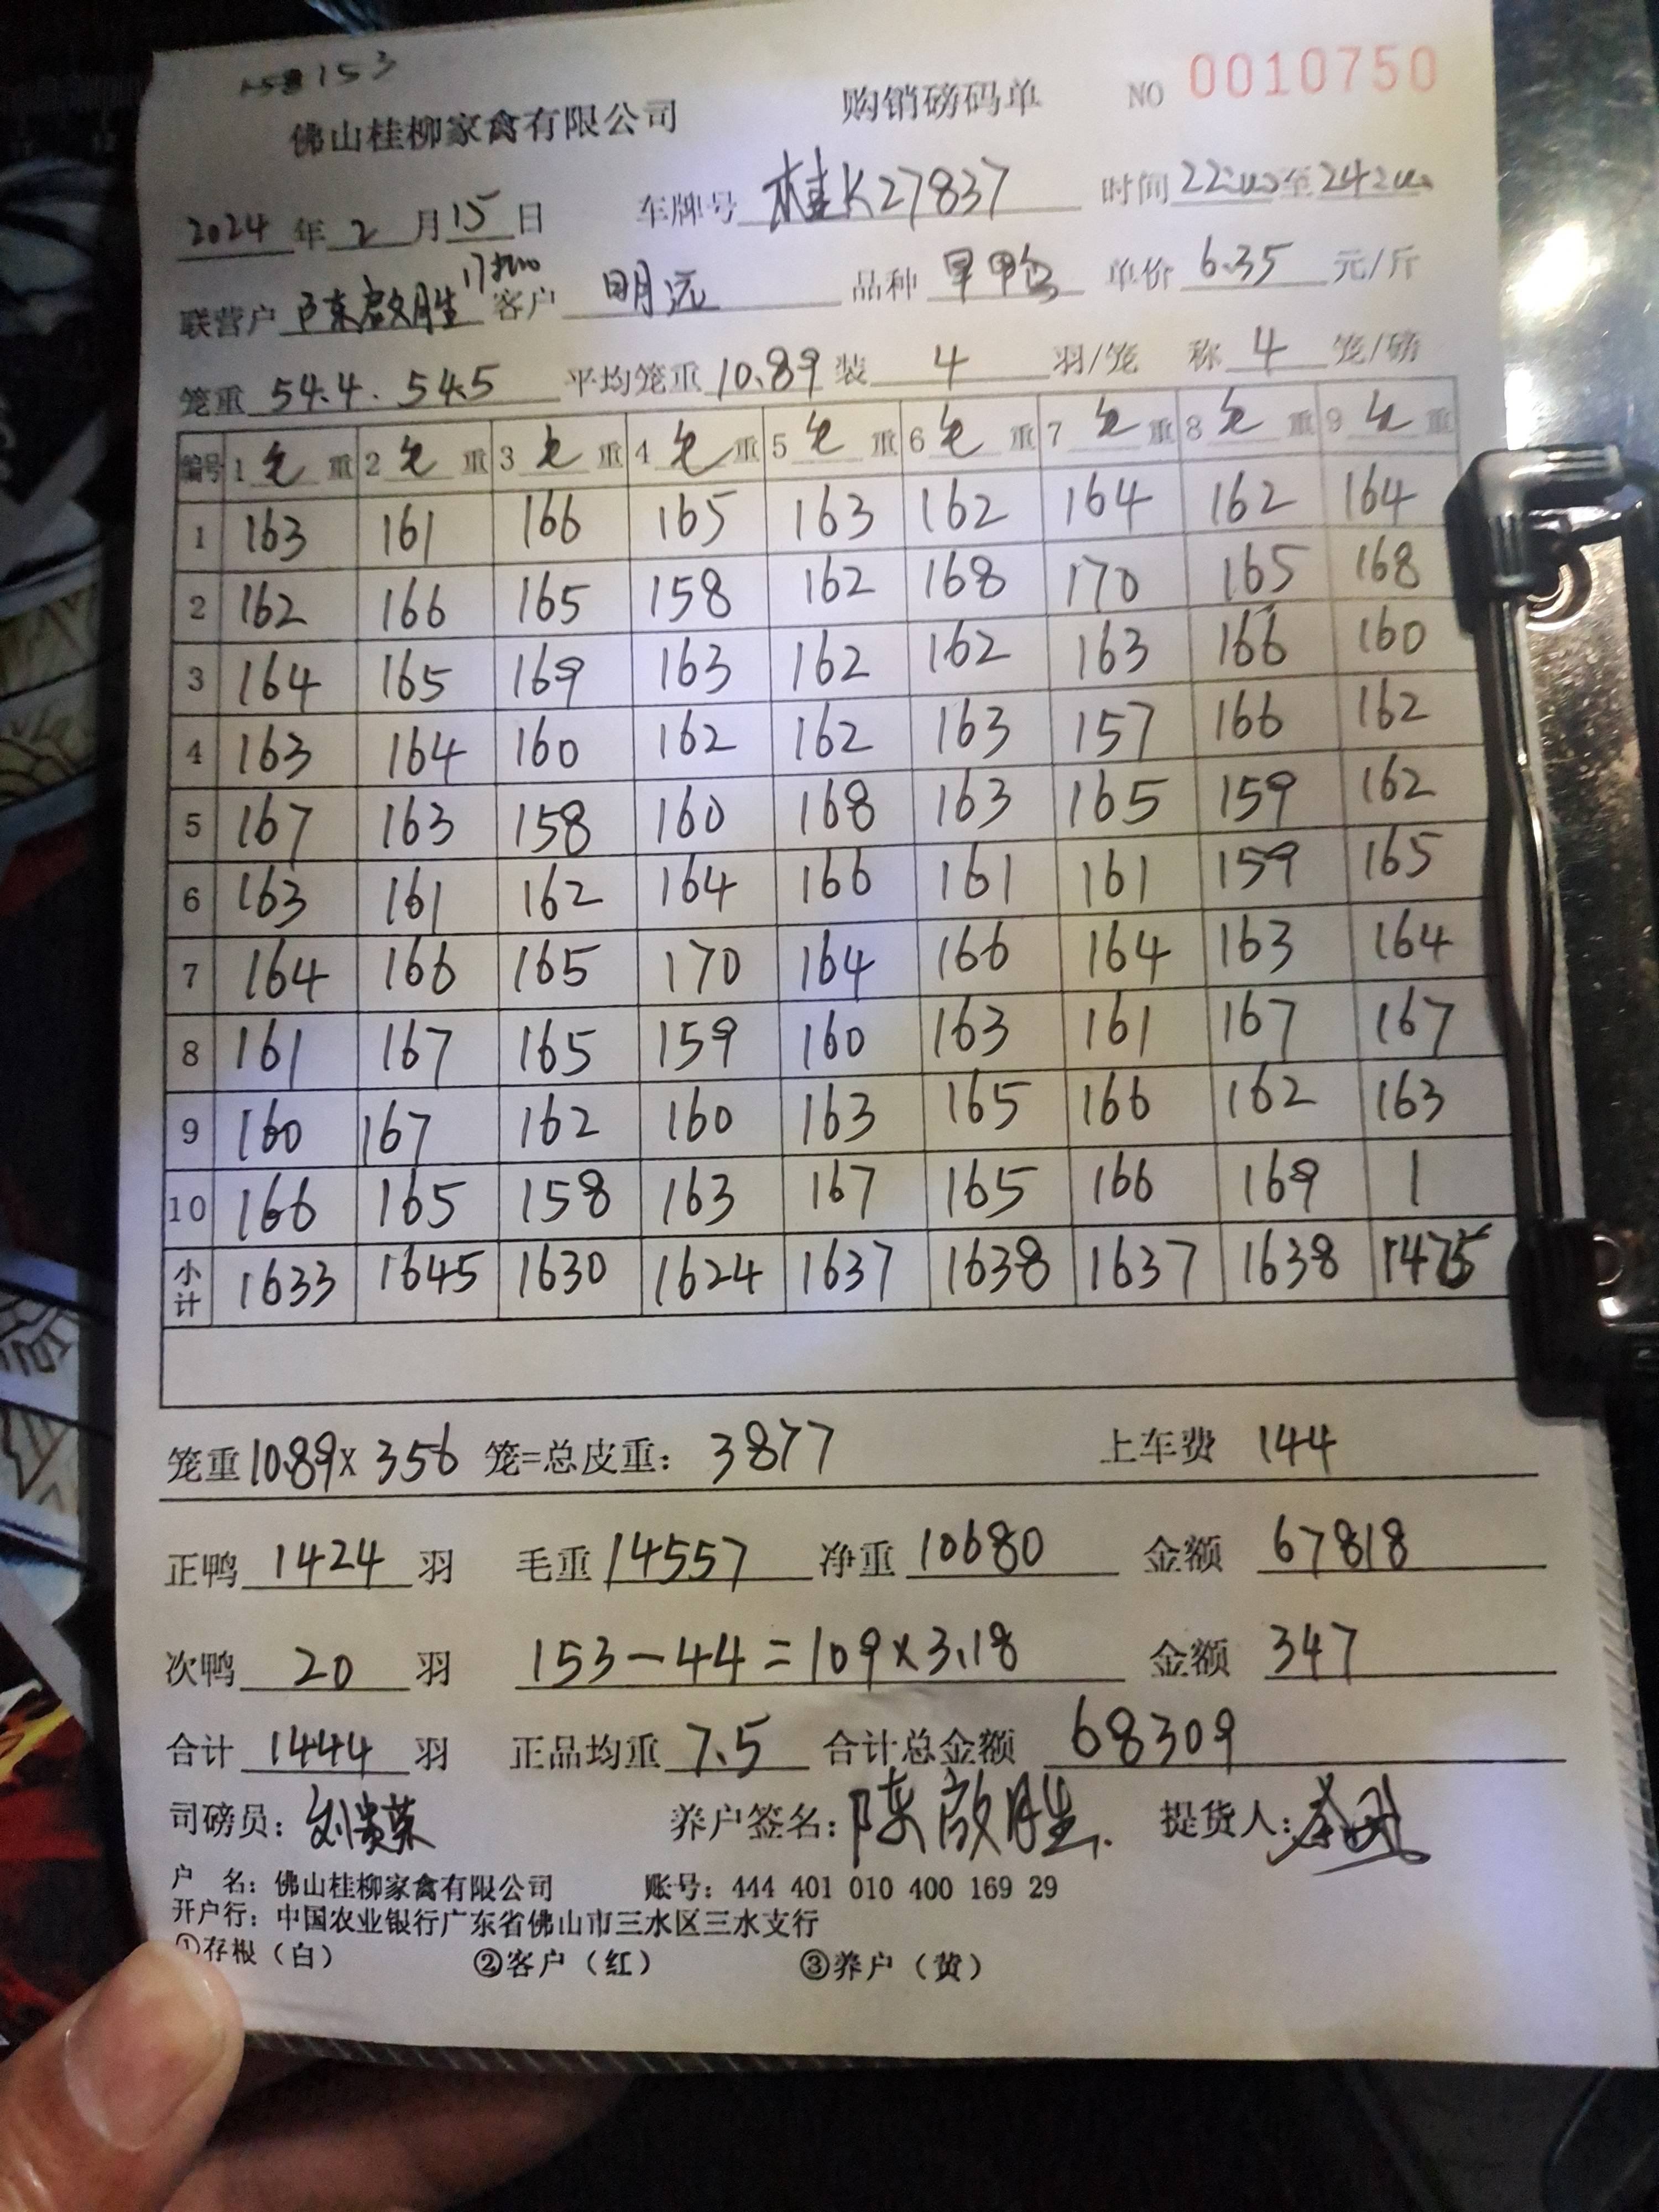 158 153
佛山桂柳家禽有限公司 购销磅码单 NO 0010750
2024年2月15日 车牌号 桂K27837 时间 22:00至24:00
联营户 陈啟胜 客户 明远 品种 旱鸭 单价 6.35 元/斤
笼重 54.4. 54.5 平均笼重 10.89 装 4 羽/笼 称 4 笼/磅
编号 1 毛重 2 毛重 3 毛重 4 毛重 5 毛重 6 毛重 7 毛重 8 毛重 9 毛重
1 163 161 166 165 163 162 164 162 164
2 162 166 165 158 162 168 170 165 168
3 164 165 169 163 162 162 163 166 160
4 163 164 160 162 162 163 157 166 162
5 167 163 158 160 168 163 165 159 162
6 163 161 162 164 166 161 161 159 165
7 164 166 165 170 164 166 164 163 164
8 161 167 165 159 160 163 161 167 167
9 160 167 162 160 163 165 166 162 163
10 166 165 158 163 167 165 166 169 1
小计 1633 1645 1630 1624 1637 1638 1637 1638 1475
笼重 10.89 x 356 笼=总皮重: 3877 上车费 144
正鸭 1424 羽 毛重 14557 净重 10680 金额 67818
次鸭 20 羽 153-44=109×3.18 金额 347
合计 1444 羽 正品均重 7.5 合计总金额 68309
司磅员: 刘贵荣 养户签名: 陈啟胜. 提货人:
户 名: 佛山桂柳家禽有限公司 账号: 444 401 010 400 169 29
开户行: 中国农业银行广东省佛山市三水区三水支行
①存根（白） ②客户（红） ③养户（黄）